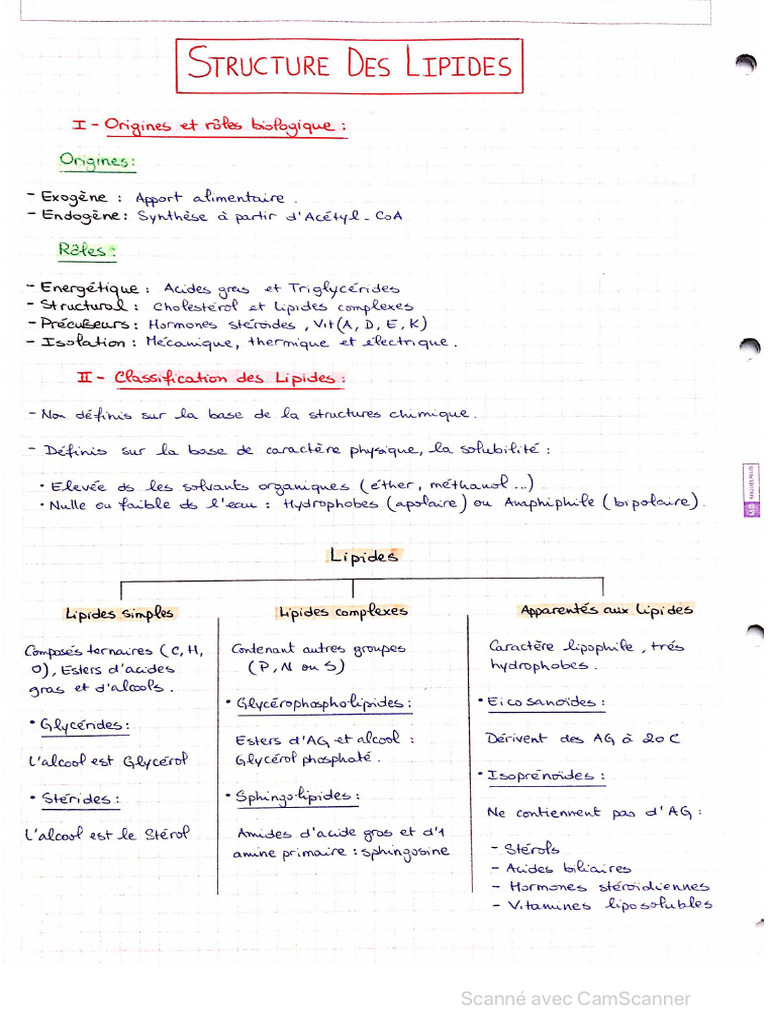 STRUCTURE DES LIPIDES
I - Origines et rôles biologique :
Origines :
- Exogène : Apport alimentaire.
- Endogène : Synthèse à partir d'Acétyl-CoA
Rôles :
- Energétique : Acides gras et Triglycérides
- Structural : Cholestérol et Lipides complexes
- Précurseurs : Hormones stéroïdes, Vit(A, D, E, K)
- Isolation : Mécanique, thermique et électrique.
II - Classification des Lipides :
- Non définis sur la base de la structures chimique.
- Définis sur la base de caractère physique, la solubilité :
• Elevée ds les solvants organiques (éther, méthanol...)
• Nulle ou faible ds l'eau : Hydrophobes (apolaire) ou Amphiphile (bipolaire).
Lipides
Lipides simples
Composés ternaires (C, H,
O), Esters d'acides
gras et d'alcools.
• Glycérides :
L'alcool est Glycérol
• Stérides :
L'alcool est le Stérol
Lipides complexes
Contenant autres groupes
(P, N ou S)
• Glycérophospholipides :
Esters d'AG et alcool :
Glycérol phosphaté.
• Sphingolipides :
Amides d'acide gras et d'1
amine primaire : sphingosine
Apparentés aux Lipides
Caractère lipophile, trés
hydrophobes.
• Eicosanoïdes :
Dérivent des AG à 20C
• Isoprénoïdes :
Ne contiennent pas d'AG :
- Stérols
- Acides biliaires
- Hormones stéroïdiennes
- Vitamines liposolubles
Scanné avec CamScanner